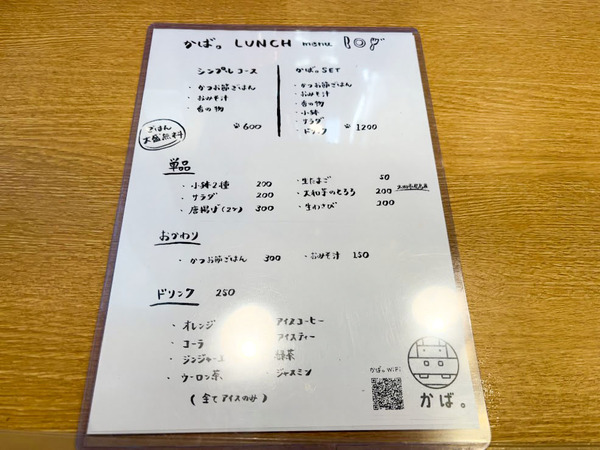 かば。 LUNCH menu
シンプルコース
・かつお節ごはん
・おみそ汁
・香の物
600
かば。SET
・かつお節ごはん
・おみそ汁
・香の物
・小鉢
・サラダ
・ドリンク 1200
ごはん
大盛無料
単品
・小鉢2種 200
・サラダ 200
・唐揚げ(2ケ) 300
・生たまご 50
・大和芋のとろろ 200
・生わさび 200
おかわり
・かつお節ごはん 300
・おみそ汁 150
ドリンク 250
・オレンジ
・コーラ
・ジンジャーエ
・ウーロン茶
アイスコーヒー
・アイスティー
緑茶
・ジャスミン
(全てアイスのみ)
かば。WiFi
かば。